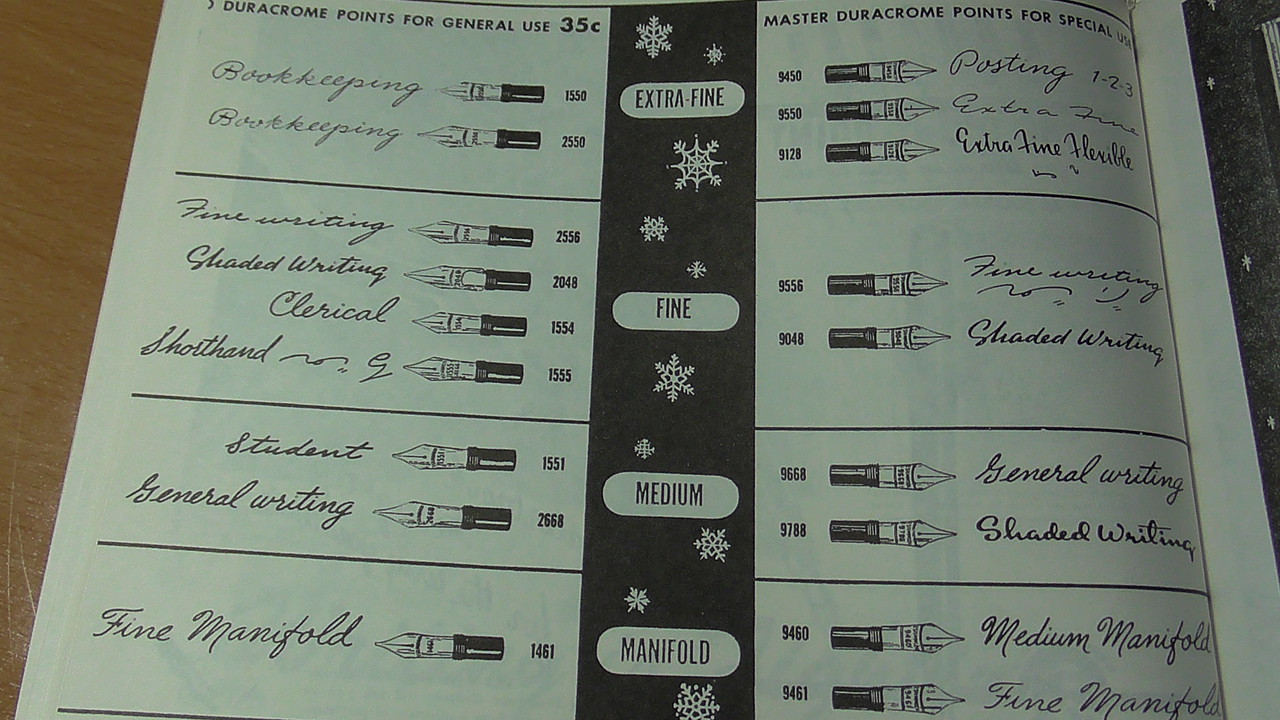 DURACROME POINTS FOR GENERAL USE 35c
Bookkeeping 1550
Bookkeeping 2550
Fine writing 2556
Shaded Writing 2048
Clerical 1554
Shorthand 1555
Student 1551
General writing 2668
Fine Manifold 1461
EXTRA-FINE
FINE
MEDIUM
MANIFOLD
MASTER DURACROME POINTS FOR SPECIAL USE
9450 Posting 1-2-3
9550 Extra Fine
9128 Extra Fine Flexible
9556 Fine writing
9048 Shaded Writing
9668 General writing
9788 Shaded Writing
9460 Medium Manifold
9461 Fine Manifold